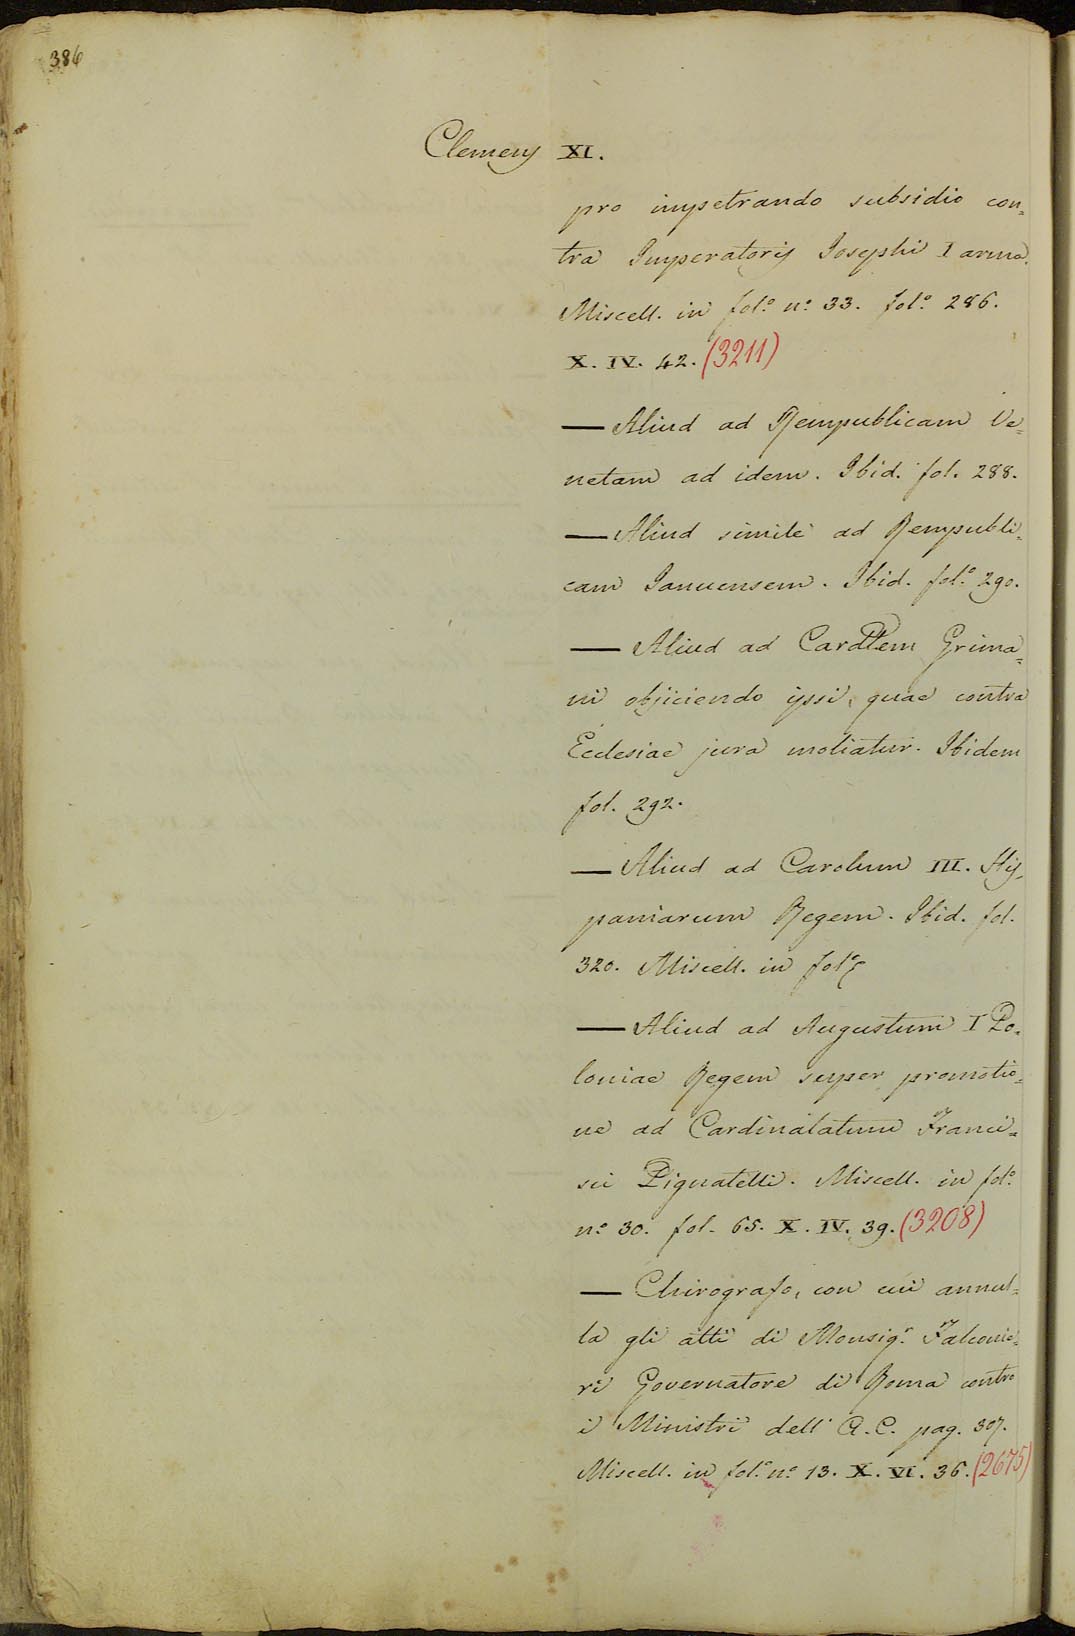 386
Clemens XI.
pro impetrando subsidio con=
tra Imperatoris Josephi I arma.
Miscell. in fol.º n.º 33. fol.º 286.
X. IV. 42. (3211)
— Aliud ad Rempublicam Ve=
netam ad idem. Ibid. fol. 288.
— Aliud simile ad Rempubli=
cam Januensem. Ibid. fol.º 290.
— Aliud ad Cardlem Grima=
ni objiciendo ipsi, quae contra
Ecclesiae jura moliatur. Ibidem
fol. 292.
— Aliud ad Carolum III. His=
paniarum Regem. Ibid. fol.
320. Miscell. in fol.º
— Aliud ad Augustum I Po=
loniae Regem super promotio=
ne ad Cardinalatum Franci=
sci Pignatelli. Miscell. in fol.º
n.º 30. fol. 65. X. IV. 39. (3208)
— Chirografo, con cui annul=
la gli atti di Monsig.r Falconie=
ri Governatore di Roma contro
i Ministri dell' A. C. pag. 307.
Miscell. in fol.º n.º 13. X. VI. 36. (2675)